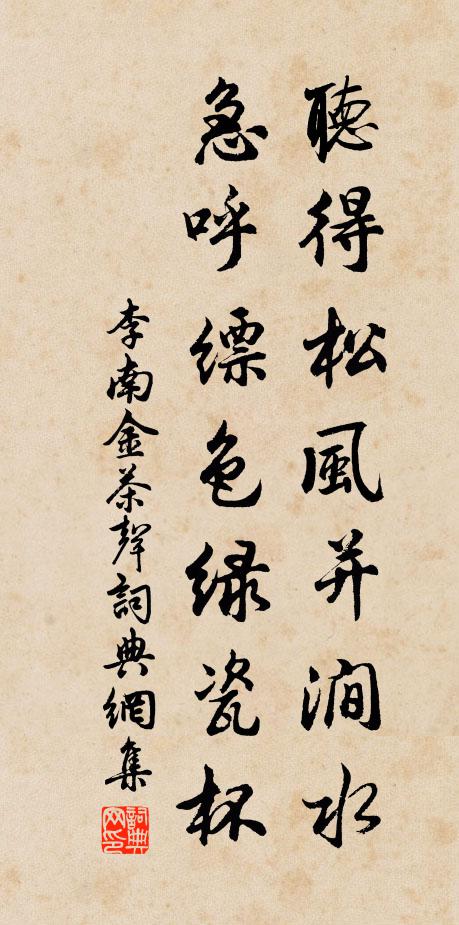 聽得松風并澗水
急呼縹色綠瓷杯
李南金茶聲詞典網集
詞典網印